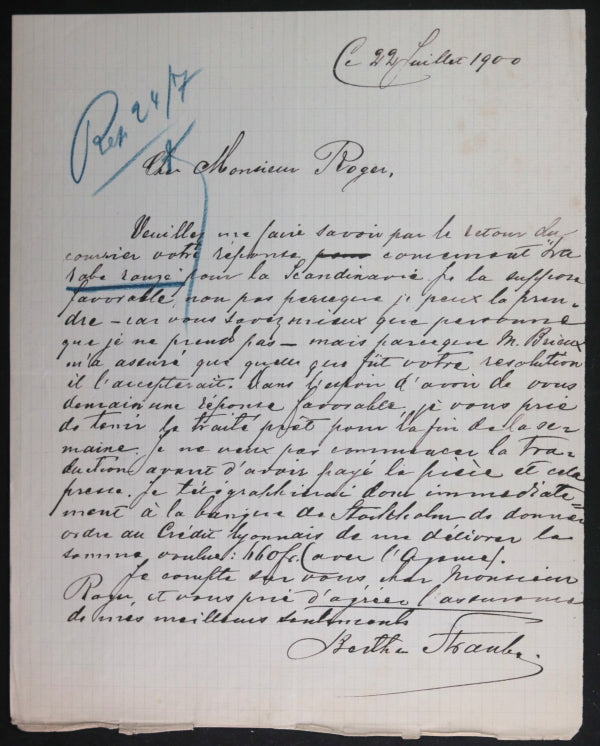 Ce 22 Juillet 1900
Rep 24/7
Cher Monsieur Roger,
Veuillez me faire savoir par le retour du
courrier votre réponse pour concernant "La
robe rouge" pour la Scandinavie. Je la suppose
favorable, non pas parceque je peux la pren-
dre – car vous savez mieux que personne
que je ne prends pas – mais parceque M. Brieux
m'a assuré que quelle que fût votre résolution
il l'accepterait. Dans l'espoir d'avoir de vous
demain une réponse favorable, je vous prie
de tenir le traité prêt pour la fin de la se-
maine. Je ne veux pas commencer la tra-
duction avant d'avoir payé la pièce et cela
presse. Je télégraphierai donc immédiate-
ment à la banque de Stockholm de donner
ordre au Crédit Lyonnais de me délivrer la
somme voulue: 660 fr. (avec l'Agence).
Je compte sur vous, cher Monsieur
Roger, et vous prie d'agréer l'assurance
de mes meilleurs sentiments
Berthe